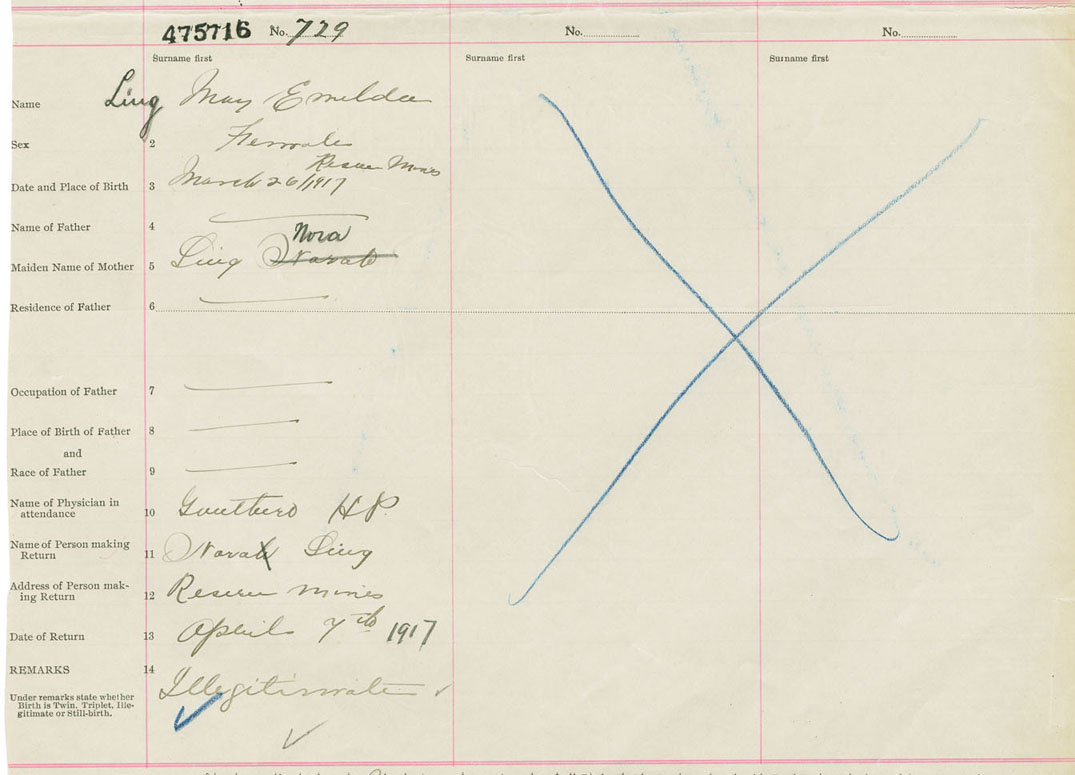 475716 No. 729 No. No.
Surname first Surname first Surname first
Name Ling May Emelda
Sex 2 Female
Reserve Mines
Date and Place of Birth 3 March 26/1917
Name of Father 4
Nora
Maiden Name of Mother 5 Ling Norah
Residence of Father 6
Occupation of Father 7
Place of Birth of Father 8
and
Race of Father 9
Name of Physician in
attendance 10 H P.
Name of Person making
Return 11 Norah Ling
Address of Person mak-
ing Return 12 Reserve Mines
Date of Return 13 April 7th 1917
REMARKS 14
Illegitimate
Under remarks state whether
Birth is Twin, Triplet, Ille-
gitimate or Still-birth.